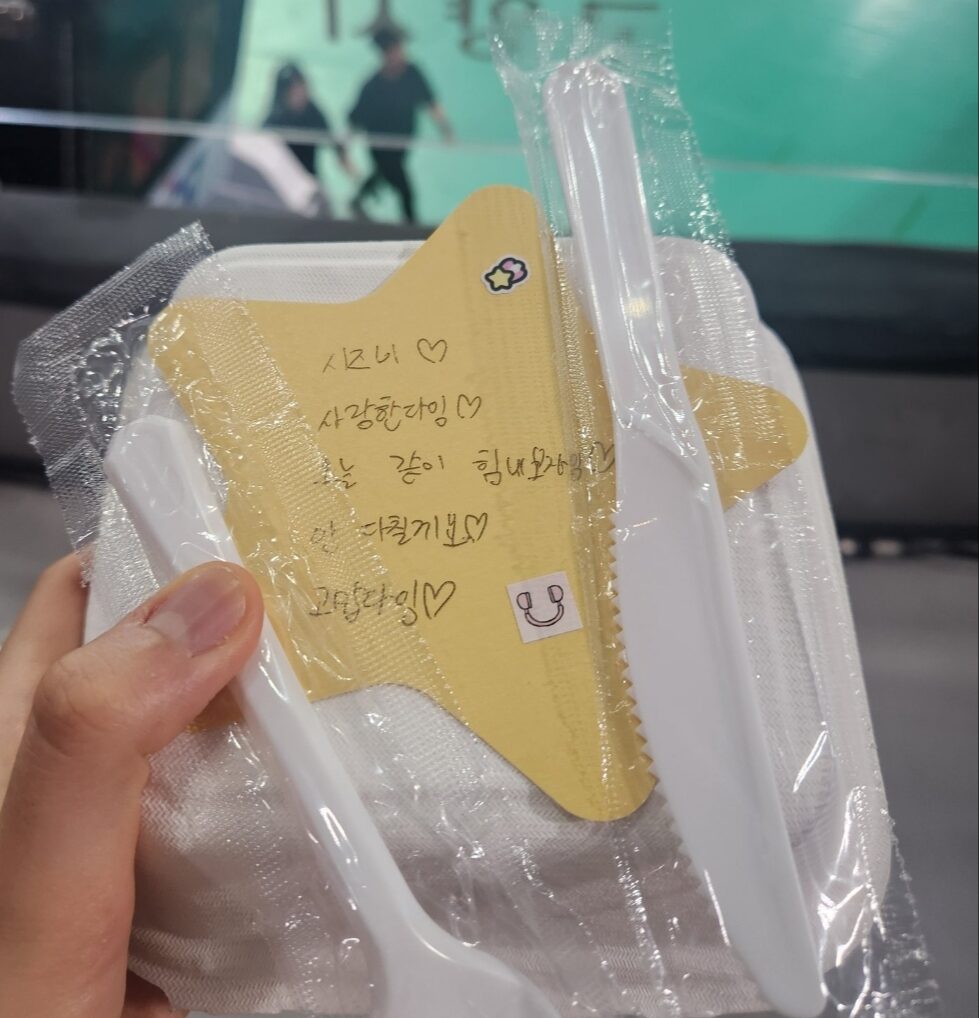 시즈니 ♡
사랑한다잉 ♡
오늘 같이 힘내보자잉 ♡
안 다칠게요 ♡
고맙다잉 ♡